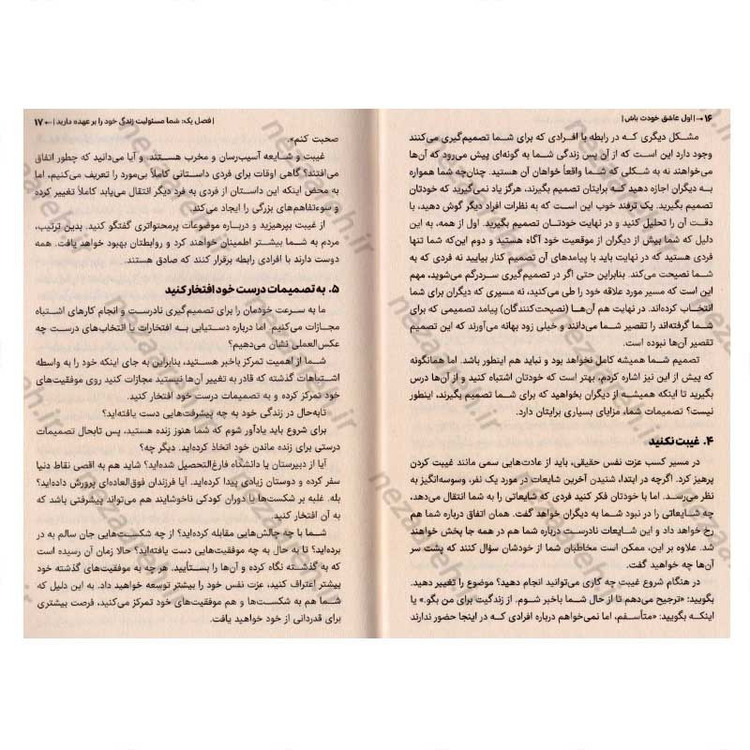 ۱۶ → | اول عاشق خودت باش |
مشکل دیگری که در رابطه با افرادی که برای شما تصمیم‌گیری می‌کنند
وجود دارد این است که از آن پس زندگی شما به گونه‌ای پیش می‌رود که آن‌ها
می‌خواهند نه به شکلی که شما واقعاً خواهان آن هستید. چنان‌چه شما همواره
به دیگران اجازه دهید که برایتان تصمیم بگیرند، هرگز یاد نمی‌گیرید که خودتان
تصمیم بگیرید. یک ترفند خوب این است که به نظرات افراد دیگر گوش دهید، با
دقت آن را تحلیل کنید و در نهایت خودتان تصمیم بگیرید. اول از همه، به این
دلیل که شما بیش از دیگران از موقعیت خود آگاه هستید و دوم این‌که شما تنها
فردی هستید که در نهایت باید با پیامدهای آن تصمیم کنار بیایید نه فردی که به
شما نصیحت می‌کند. بنابراین حتی اگر در تصمیم‌گیری سردرگم می‌شوید، مهم
این است که مسیر مورد علاقه خود را طی می‌کنید، نه مسیری که دیگران برای شما
انتخاب کرده‌اند. در نهایت هم آن‌ها (نصیحت‌کنندگان) پیامد تصمیمی که برای
شما گرفته‌اند را تقصیر شما می‌دانند و خیلی زود بهانه می‌آورند که این تصمیم
تقصیر آن‌ها نبوده است.
تصمیم شما همیشه کامل نخواهد بود و نباید هم اینطور باشد. اما همانگونه
که پیش از این نیز اشاره کردم، بهتر است که خودتان اشتباه کنید و از آن‌ها درس
بگیرید تا اینکه همیشه از دیگران بخواهید که برای شما تصمیم بگیرند، اینطور
نیست؟ تصمیمات شما، مزایای بسیاری برایتان دارد.
۴. غیبت نکنید
در مسیر کسب عزت نفس حقیقی، باید از عادت‌هایی سمی مانند غیبت کردن
پرهیز کرد. اگرچه در ابتدا، شنیدن آخرین شایعات در مورد یک نفر، وسوسه‌انگیز به
نظر می‌رسد. اما با خودتان فکر کنید فردی که شایعاتی را به شما انتقال می‌دهد،
چه شایعاتی را در نبود شما به دیگران خواهد گفت. همان اتفاق درباره شما هم
رخ خواهد داد و این شایعات نادرست درباره شما هم در همه جا پخش خواهند
شد. علاوه بر این، ممکن است مخاطبان شما از خودشان سؤال کنند که پشت سر
آن‌ها چه خواهید گفت.
در هنگام شروع غیبت چه کاری می‌توانید انجام دهید؟ موضوع را تغییر دهید.
بگویید: «ترجیح می‌دهم تا از حال شما باخبر شوم. از زندگیت برای من بگو.» یا
اینکه بگویید: «متأسفم، اما نمی‌خواهم درباره افرادی که در اینجا حضور ندارند
| فصل یک: شما مسئولیت زندگی خود را بر عهده دارید | ← ۱۷
صحبت کنم.»
غیبت و شایعه آسیب‌رسان و مخرب هستند. و آیا می‌دانید که چطور اتفاق
می‌افتند؟ گاهی اوقات برای فردی داستانی کاملاً بی‌مورد را تعریف می‌کنیم، اما
به محض اینکه این داستان از فردی به فرد دیگر انتقال می‌یابد کاملاً تغییر کرده
و سوءتفاهم‌های بزرگی را ایجاد می‌کند.
از غیبت بپرهیزید و درباره موضوعات پرمحتواتری گفتگو کنید. بدین ترتیب،
مردم به شما بیشتر اطمینان خواهند کرد و روابطتان بهبود خواهد یافت. همه
دوست دارند با افرادی رابطه برقرار کنند که صادق هستند.
۵. به تصمیمات درست خود افتخار کنید
ما به سرعت خودمان را برای تصمیم‌گیری نادرست و انجام کارهای اشتباه
مجازات می‌کنیم. اما درباره دستیابی به افتخارات با انتخاب‌های درست چه
عکس‌العملی نشان می‌دهیم؟
شما از اهمیت تمرکز باخبر هستید، بنابراین به جای اینکه خود را به واسطه
اشتباهات گذشته که قادر به تغییر آن‌ها نیستید مجازات کنید روی موفقیت‌های
خود تمرکز کرده و به تصمیمات درست خود افتخار کنید.
تابه‌حال در زندگی خود به چه پیشرفت‌هایی دست یافته‌اید؟
برای شروع باید یادآور شوم که شما هنوز زنده هستید، پس تابحال تصمیمات
درستی برای زنده ماندن خود اتخاذ کرده‌اید. دیگر چه؟
آیا از دبیرستان یا دانشگاه فارغ‌التحصیل شده‌اید؟ شاید هم به اقصی نقاط دنیا
سفر کرده و دوستان زیادی پیدا کرده‌اید. آیا فرزندان فوق‌العاده‌ای پرورش داده‌اید؟
بله. غلبه بر شکست‌ها یا دوران کودکی ناخوشایند هم می‌تواند پیشرفتی باشد که
به آن افتخار کنید.
شما با چه چالش‌هایی مقابله کرده‌اید؟ از چه شکست‌هایی جان سالم به در
برده‌اید؟ تا به حال به چه موفقیت‌هایی دست یافته‌اید؟ حالا زمان آن رسیده است
که به گذشته نگاه کرده و آن‌ها را بستأیید. هر چه به موفقیت‌های گذشته خود
بیشتر اعتراف کنید، عزت نفس خود را بیشتر توسعه خواهید داد. به این دلیل که
شما هم به شکست‌ها و هم موفقیت‌های خود تمرکز می‌کنید، فرصت بیشتری
برای قدردانی از خود خواهید یافت.
nezaaeh.ir